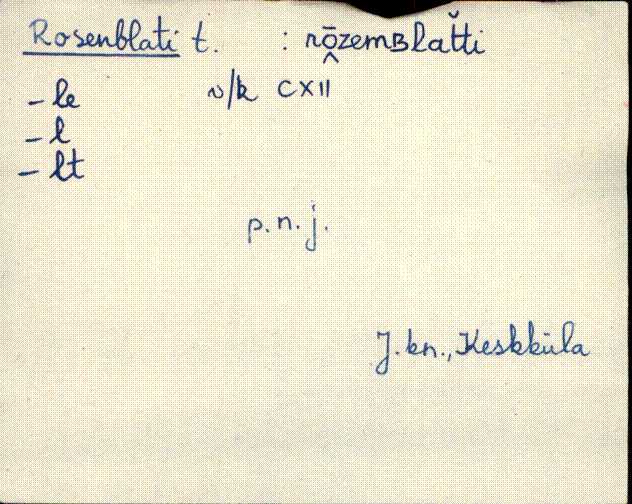 Rosenblati t. : rōzemʙlat̆ti
-le v/k CXII
-l
-lt
p.n.j.
J.kn., Keskküla